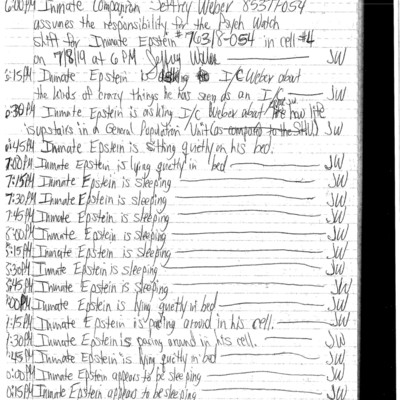 6:00PM Inmate Companion Jeffrey Weber 85377-054
assumes the responsibility for the Psych Watch
shift for Inmate Epstein #76318-054 in cell #4
on 7/8/19 at 6:00PM Jeffrey Weber JW
:15PM Inmate Epstein is asking I/C Weber about
the kinds of crazy things he has seen as an I/C JW
:30PM Inmate Epstein is asking I/C Weber about how life
is upstairs in a General Population Unit (as compared to the SHU) JW
:45PM Inmate Epstein is sitting quietly on his bed.
7:00PM Inmate Epstein is lying quietly in bed JW
7:15PM Inmate Epstein is sleeping JW
7:30PM Inmate Epstein is sleeping JW
7:45PM Inmate Epstein is sleeping JW
:00PM Inmate Epstein is sleeping JW
:15PM Inmate Epstein is sleeping JW
:30PM Inmate Epstein is sleeping JW
:45PM Inmate Epstein is sleeping JW
:00PM Inmate Epstein is lying quietly in bed JW
:15PM Inmate Epstein is pacing around in his cell. JW
:30PM Inmate Epstein is pacing around in his cell. JW
:45PM Inmate Epstein is lying quietly in bed JW
:00PM Inmate Epstein appears to be sleeping JW
:15PM Inmate Epstein appears to be sleeping JW